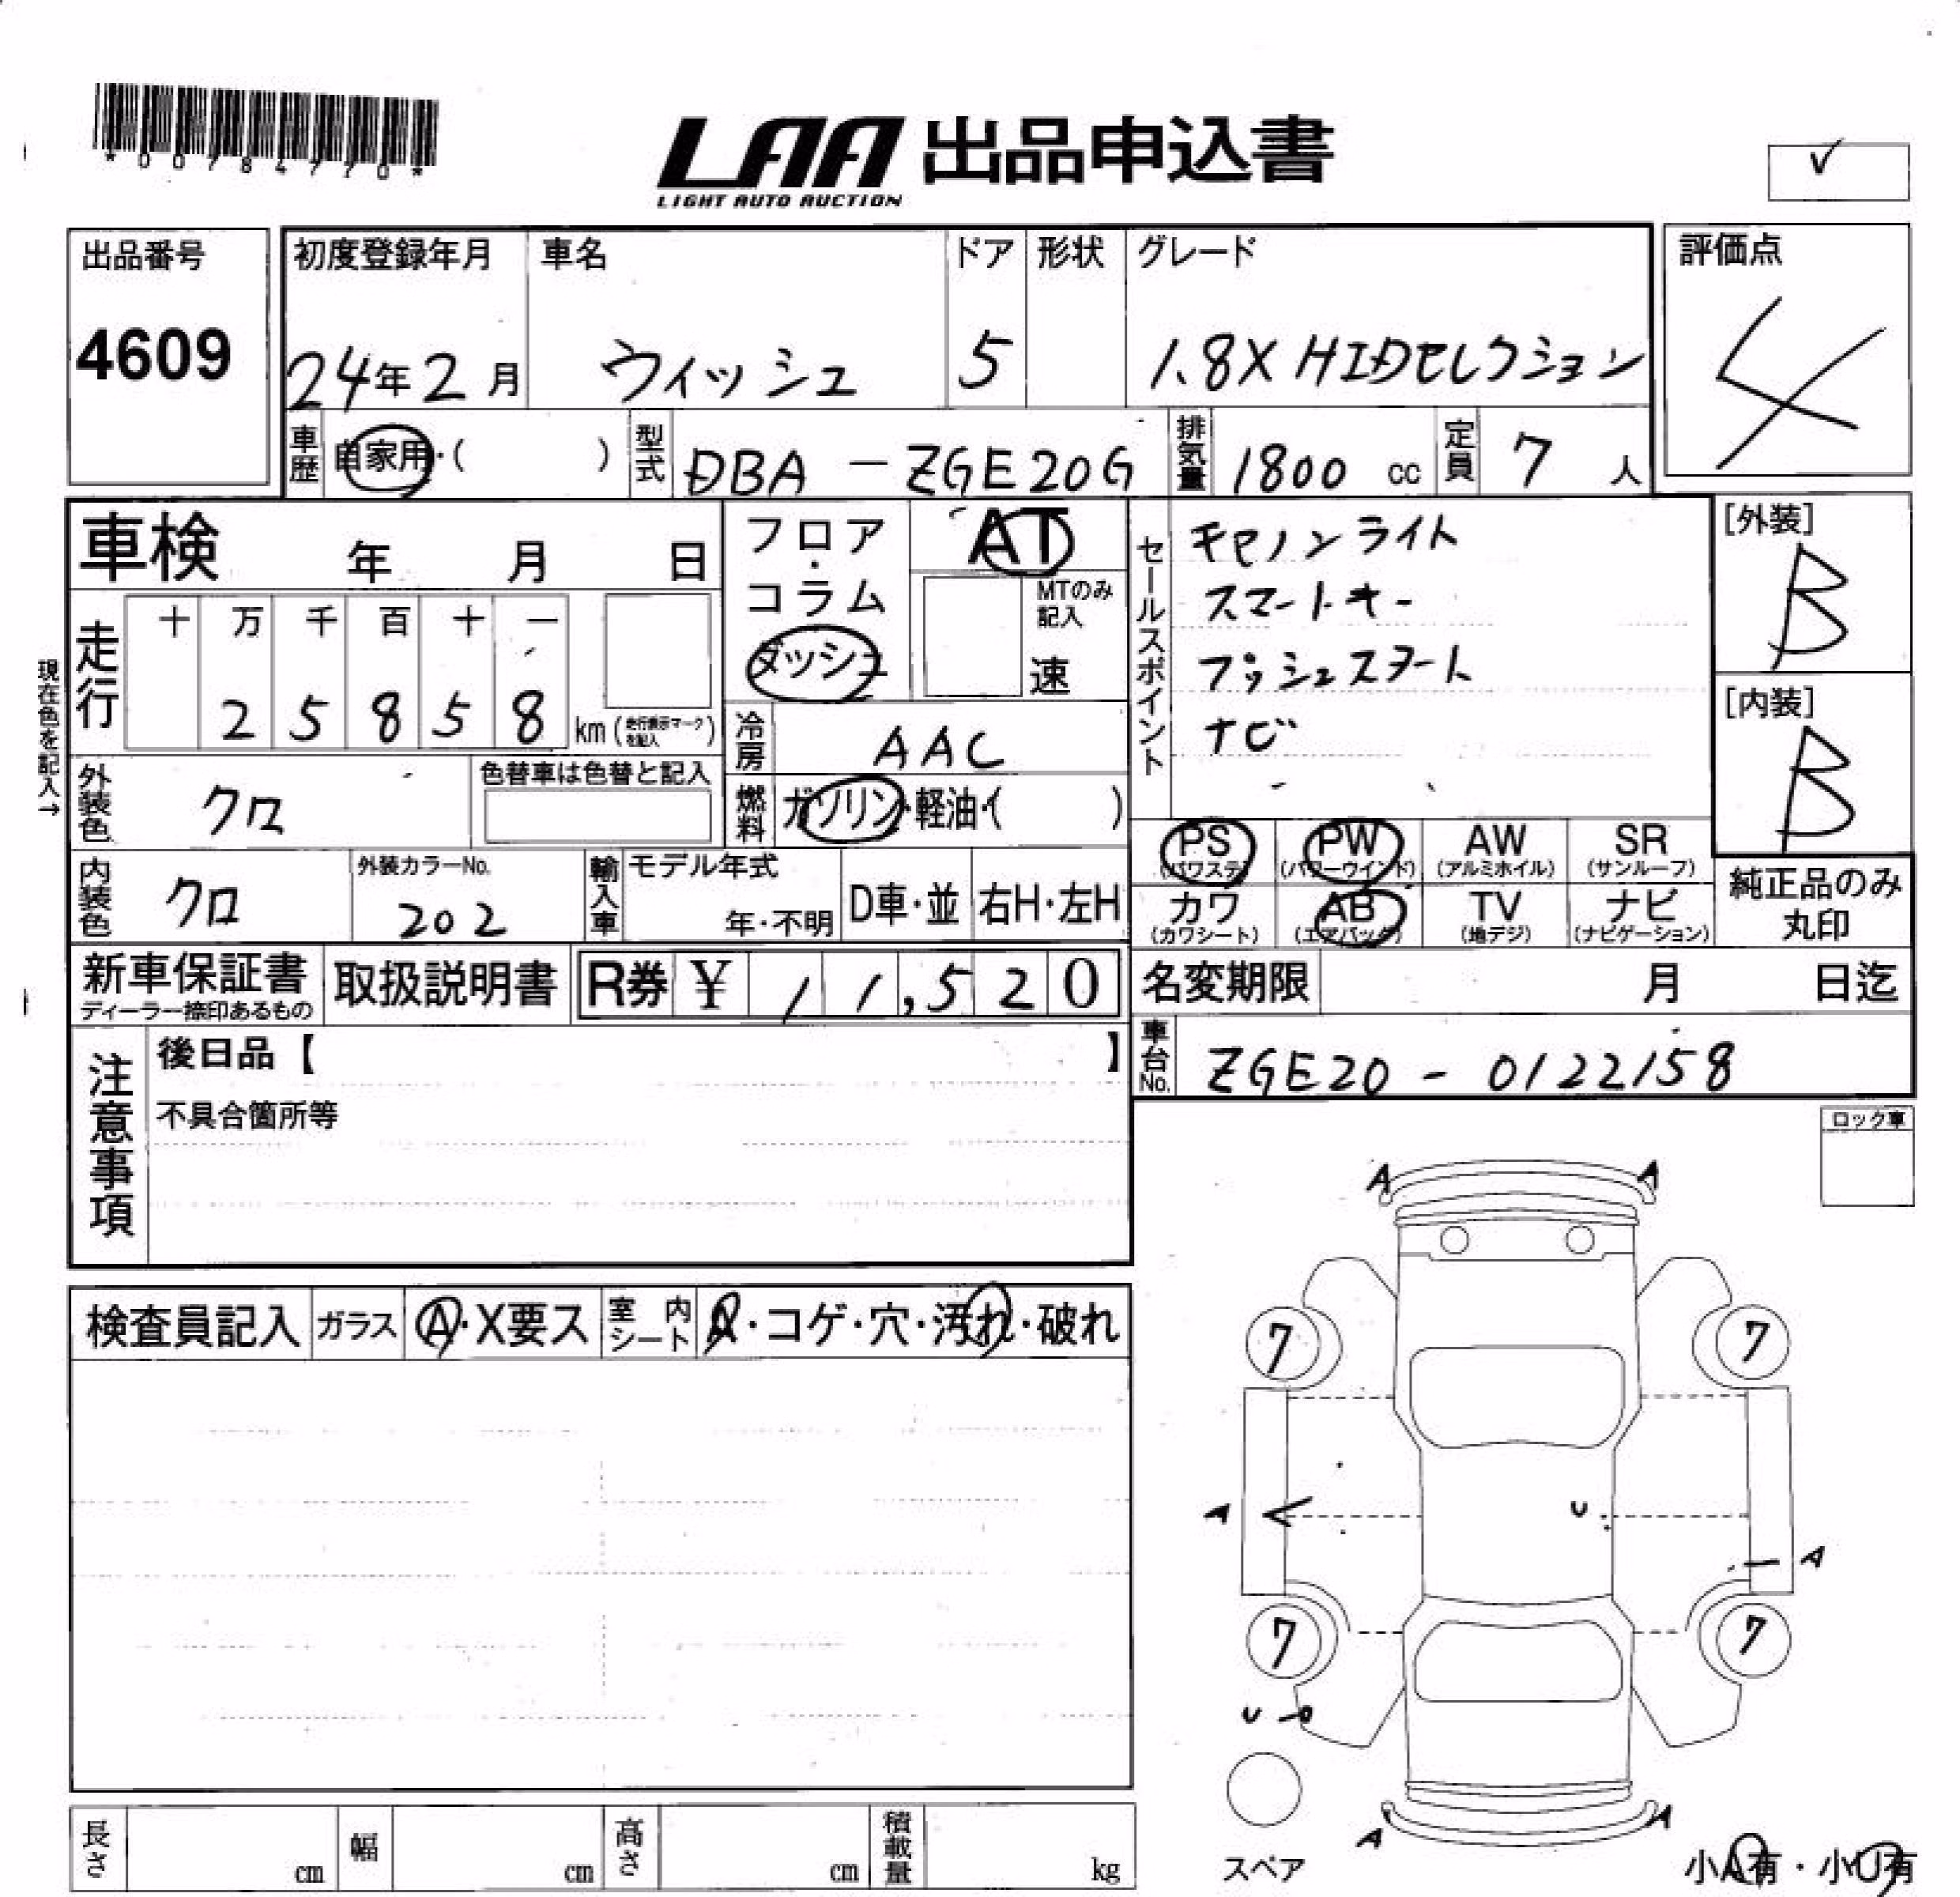 *00784770*
LAA 出品申込書
LIGHT AUTO AUCTION
✓
出品番号
4609
初度登録年月
24年2月
車名
ウィッシュ
ドア
5
形状
グレード
1.8X HIDセレクション
評価点
4
車歴 自家用・( )
型式 DBA-ZGE20G
排気量 1800 cc
定員 7 人
車検 年 月 日
フロア・コラム
ダッシュ
AT
MTのみ記入
速
セールスポイント
キセノンライト
スマートキー
プッシュスタート
ナビ
[外装]
B
[内装]
B
現在色を記入→
走行
十 万 千 百 十 一
2 5 8 5 8 km (走行表示マークを記入)
冷房 AAC
外装色 クロ
色替車は色替と記入
燃料 ガソリン・軽油・( )
PS (パワステ)
PW (パワーウインド)
AW (アルミホイル)
SR (サンルーフ)
カワ (カワシート)
AB (エアバッグ)
TV (地デジ)
ナビ (ナビゲーション)
純正品のみ丸印
内装色 クロ
外装カラーNo. 202
輸入車
モデル年式
年・不明
D車・並
右H・左H
新車保証書
ディーラー捺印あるもの
取扱説明書
R券 ¥ 11,520
名変期限 月 日迄
車台No. ZGE20-0122158
注意事項
後日品【 】
不具合箇所等
ロック車
検査員記入
ガラス A・X要ス
室内シート A・コゲ・穴・汚れ・破れ
A A
7 7
A U A
7 7
U
A A
スペア
小A有・小U有
長さ cm
幅 cm
高さ cm
積載量 kg